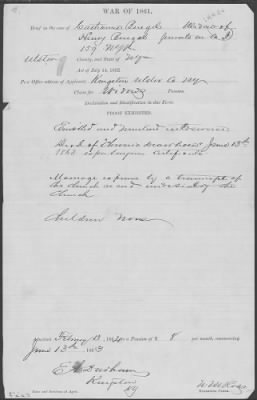 WAR OF 1861.
Brief in the case of Catharine Widow of
Henry private in Co. D
159 NYV
Ulster County, and State of NY
Act of July 14, 1862.
Post Office address of Applicant: Kingston Ulster Co NY
Claim for Widows Pension.
Declaration and Identification in Due Form.
PROOF EXHIBITED.
Enlisted and mustered into service
Died of Chronic Diarrhoea June 13th
1863 Certificate
Marriage is proven by a transcript of
the church record under seal of the
church
Children None
Admitted Feb 13, 1864, to a Pension of $ 8 per month, commencing
June 13th 1863
Durham
Kingston
NY
Name and Residence of Agent.
Examining Clerk.